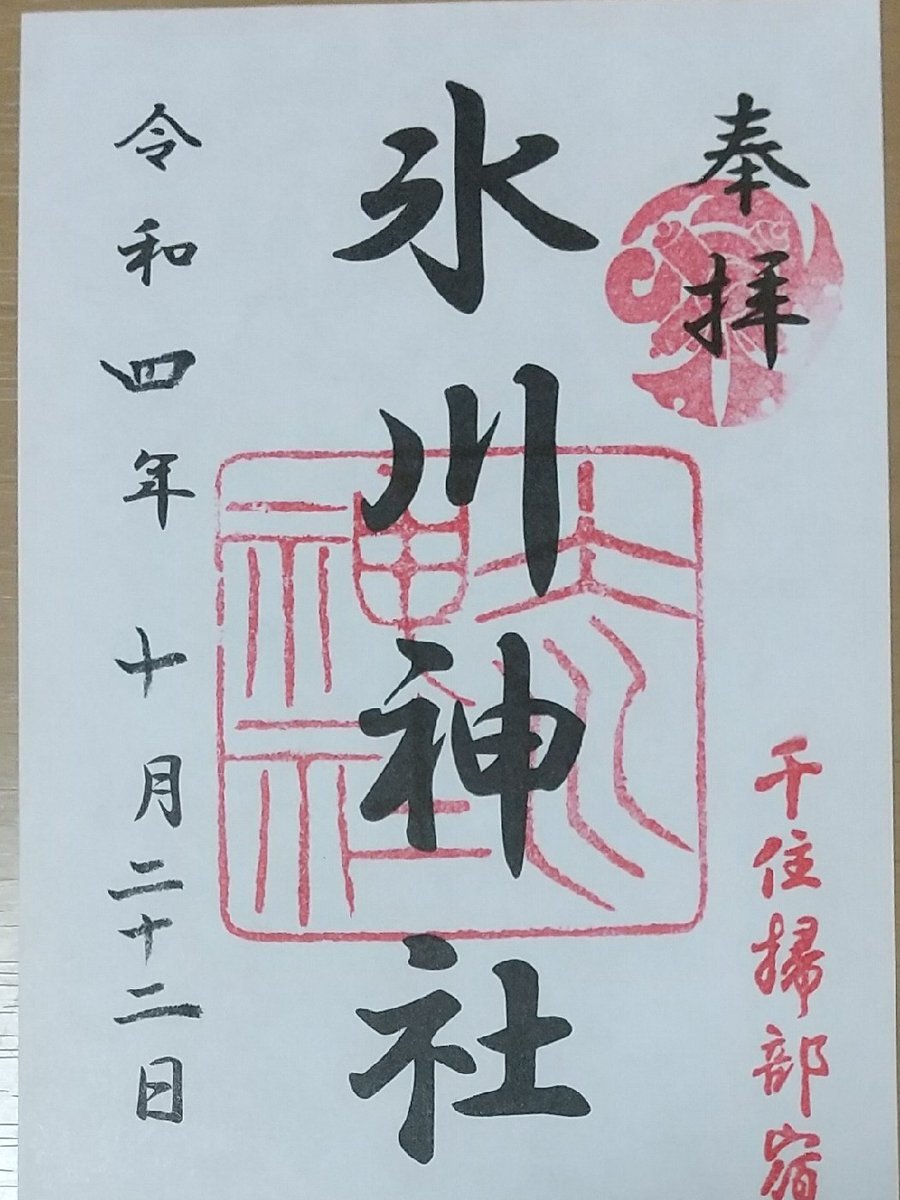 奉拝
千住掃部宿
氷川神社
氷川神社
令和四年十月二十二日